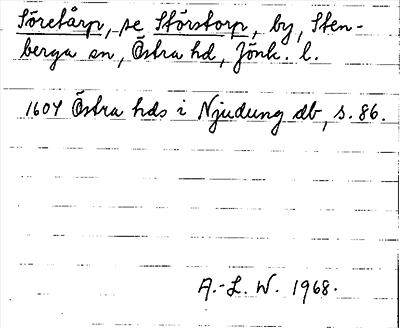 Söretårp, se Störstorp, by, Sten-
berga sn, Östra hd, Jönk. l.
1604 Östra hds i Njudung db, s. 86.
A.-L. W. 1968.